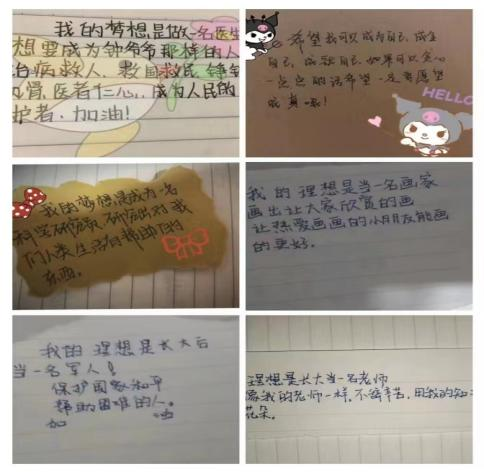 我的梦想是做一名医生
想要成为钟爷爷那样的人
治病救人，救国救民，铮铮
医者仁心，成为人民的
护者，加油！
希望我可以成为自己，成全
自己，成就自己，如果可以贪心
一点点的话希望一定要愿望
成真哦！
HELLO
我的梦想是成为一名
科学研究员，研究出对我
们人类生活有帮助的
东西。
我的理想是当一名画家
画出让大家欣赏的画
让热爱画画的小朋友能画
的更好。
我的理想是长大后
当一名军人！
保护国家和平
帮助困难的人。
加油
理想是长大当一名老师
像我的老师一样，不辞辛苦，用我的知
花朵。